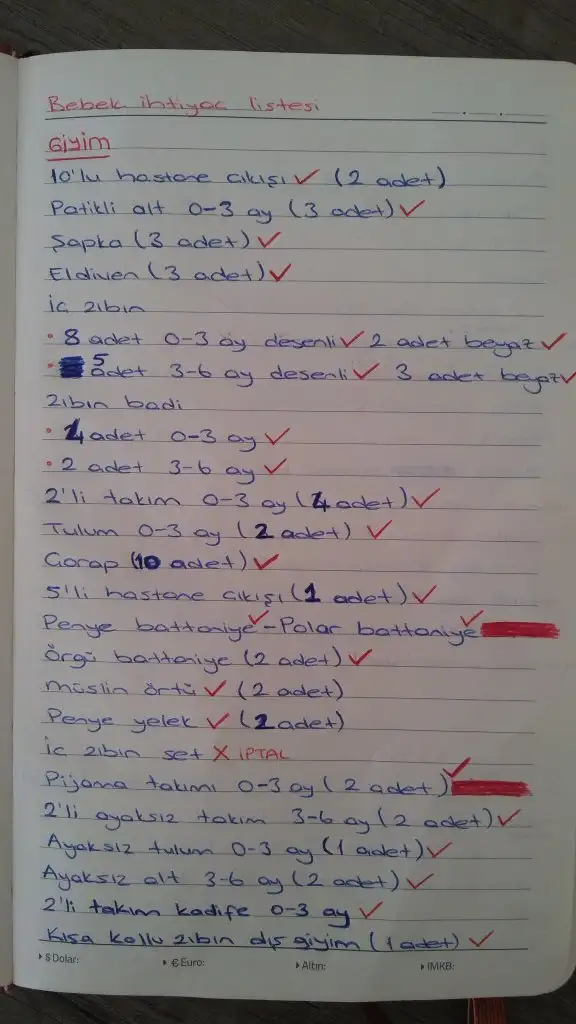 Bebek ihtiyac listesi
Giyim
10'lu hastane cıkışı ✓ (2 adet)
Patikli alt 0-3 ay (3 adet) ✓
Şapka (3 adet) ✓
Eldiven (3 adet) ✓
ic zıbın
• 8 adet 0-3 ay desenli ✓ 2 adet beyaz ✓
• 5 adet 3-6 ay desenli ✓ 3 adet beyaz ✓
zıbın badi
• 4 adet 0-3 ay ✓
• 2 adet 3-6 ay ✓
2'li takım 0-3 ay (4 adet) ✓
Tulum 0-3 ay (2 adet) ✓
Corap (10 adet) ✓
5'li hastane cıkışı (1 adet) ✓
Penye battaniye ✓ - Polar battaniye ✓
Örgü battaniye (2 adet) ✓
müslin örtü ✓ (2 adet)
Penye yelek ✓ (2 adet)
ic zıbın set X İPTAL
Pijama takımı 0-3 ay (2 adet) ✓
2'li ayaksız takım 3-6 ay (2 adet) ✓
Ayaksız tulum 0-3 ay (1 adet) ✓
Ayaksız alt 3-6 ay (2 adet) ✓
2'li takım kadife 0-3 ay ✓
Kısa kollu zıbın dış giyim (1 adet) ✓
$ Dolar: € Euro: Altın: IMKB: